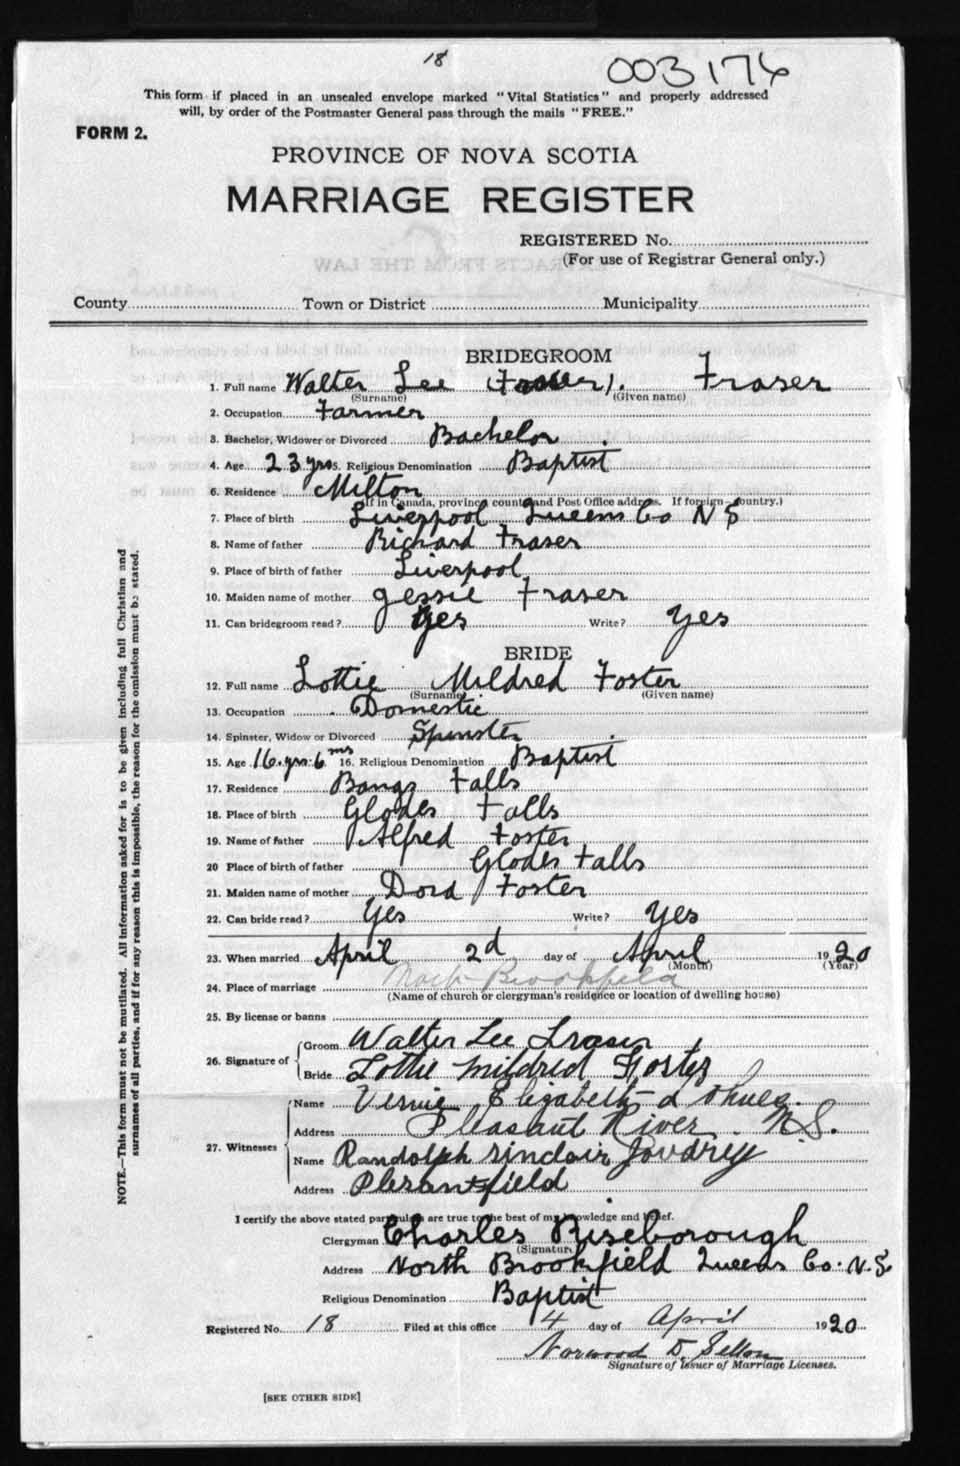 18
003176
This form if placed in an unsealed envelope marked "Vital Statistics" and properly addressed
will, by order of the Postmaster General pass through the mails "FREE."
FORM 2.
PROVINCE OF NOVA SCOTIA
MARRIAGE REGISTER
REGISTERED No.
(For use of Registrar General only.)
County Town or District Municipality
BRIDEGROOM
1. Full name Walter Lee Fraser
(Surname) (Given name)
2. Occupation Farmer
3. Bachelor, Widower or Divorced Bachelor
4. Age 23 yrs 5. Religious Denomination Baptist
6. Residence Milton
(If in Canada, province county and Post Office address. If foreign country.)
7. Place of birth Liverpool Queens Co N S
8. Name of father Richard Fraser
9. Place of birth of father Liverpool
10. Maiden name of mother Jessie Fraser
11. Can bridegroom read? Yes Write? Yes
BRIDE
12. Full name Lottie Mildred Foster
(Surname) (Given name)
13. Occupation Domestic
14. Spinster, Widow or Divorced Spinster
15. Age 16 yrs 6 ms 16. Religious Denomination Baptist
17. Residence Bangs Falls
18. Place of birth Glodes Falls
19. Name of father Alfred Foster
20 Place of birth of father Glodes Falls
21. Maiden name of mother Dora Foster
22. Can bride read? Yes Write? Yes
23. When married April 2d day of April 1920
(Month) (Year)
24. Place of marriage North Brookfield
(Name of church or clergyman's residence or location of dwelling house)
25. By license or banns
26. Signature of
Groom Walter Lee Fraser
Bride Lottie Mildred Foster
27. Witnesses
Name Vernie Elizabeth
Address Pleasant River. N.S.
Name Randolph Sinclair Joudrey
Address Pleasantfield
I certify the above stated particulars are true to the best of my knowledge and belief.
Clergyman Charles Riseborough
(Signature)
Address North Brookfield Queens Co. N.S.
Religious Denomination Baptist
Registered No. 18 Filed at this office 4 day of April 1920
Norwood D. Sellon
Signature of Issuer of Marriage Licenses.
[SEE OTHER SIDE]
NOTE.—This form must not be mutilated. All information asked for is to be given including full Christian and
surnames of all parties, and if for any reason this is impossible, the reason for the omission must be stated.